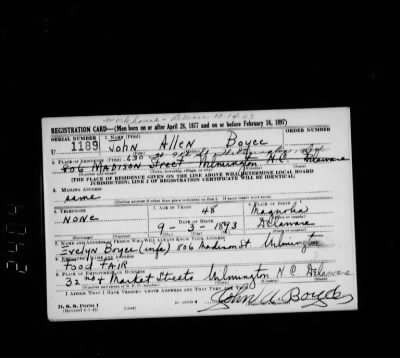 REGISTRATION CARD—(Men born on or after April 28, 1877 and on or before February 16, 1897)
SERIAL NUMBER 1. NAME (Print) ORDER NUMBER
U 1189 John Allen Boyce
2. PLACE OF RESIDENCE (Print) 630
806 MADISON Street Wilmington N.C. Delaware
[THE PLACE OF RESIDENCE GIVEN ON THE LINE ABOVE WILL DETERMINE LOCAL BOARD
JURISDICTION; LINE 2 OF REGISTRATION CERTIFICATE WILL BE IDENTICAL]
3. MAILING ADDRESS
same
4. TELEPHONE 5. AGE IN YEARS 6. PLACE OF BIRTH
NONE 48 Magnolia
DATE OF BIRTH
9-3-1893 Delaware
7. NAME AND ADDRESS OF PERSON WHO WILL ALWAYS KNOW YOUR ADDRESS
Evelyn Boyce (wife) 806 Madison St Wilmington
8. EMPLOYER'S NAME AND ADDRESS
FOOD FAIR
9. PLACE OF EMPLOYMENT OR BUSINESS
32nd + Market Streets Wilmington N C Delaware
I AFFIRM THAT I HAVE VERIFIED ABOVE ANSWERS AND THAT THEY ARE TRUE.
D. S. S. Form 1 John A. Boyce
2404